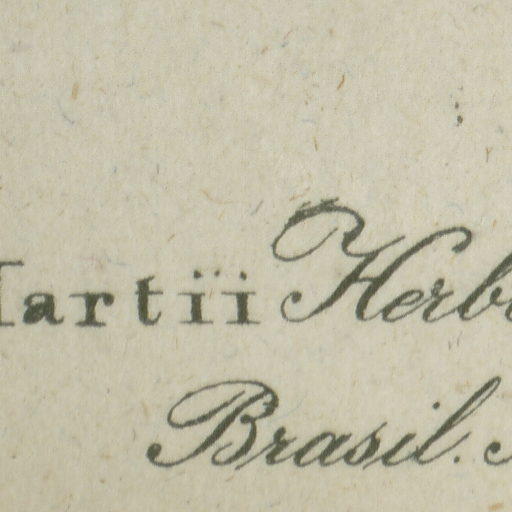 Martii Herb
Brasil.